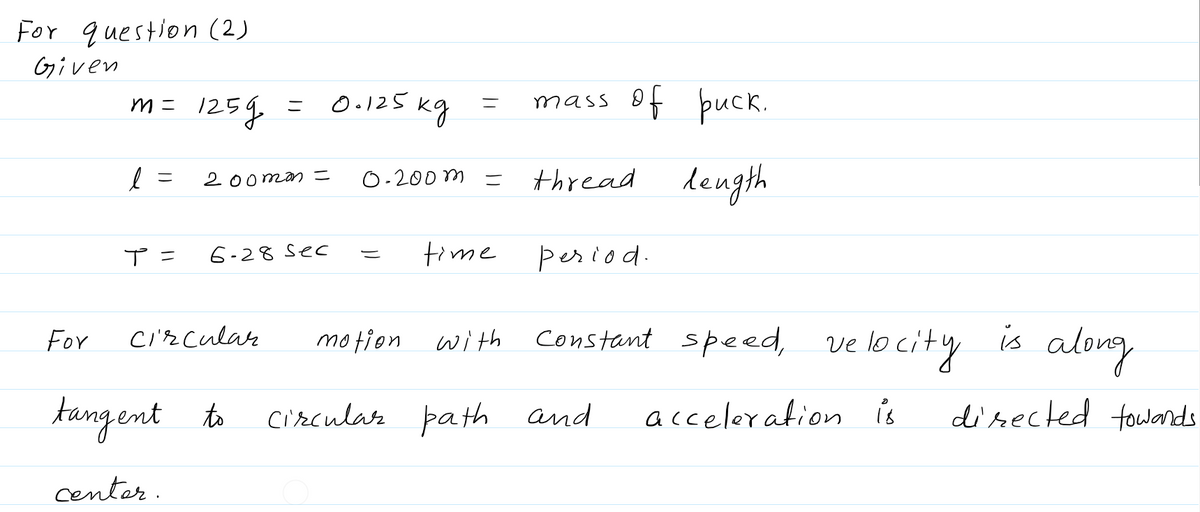 For question (2)
Given
m = 125g = 0.125 kg = mass of puck.
l = 200mm = 0.200m = thread length
T = 6.28 sec = time period.
For circular motion with constant speed, velocity is along
tangent to circular path and acceleration is directed towards
center.